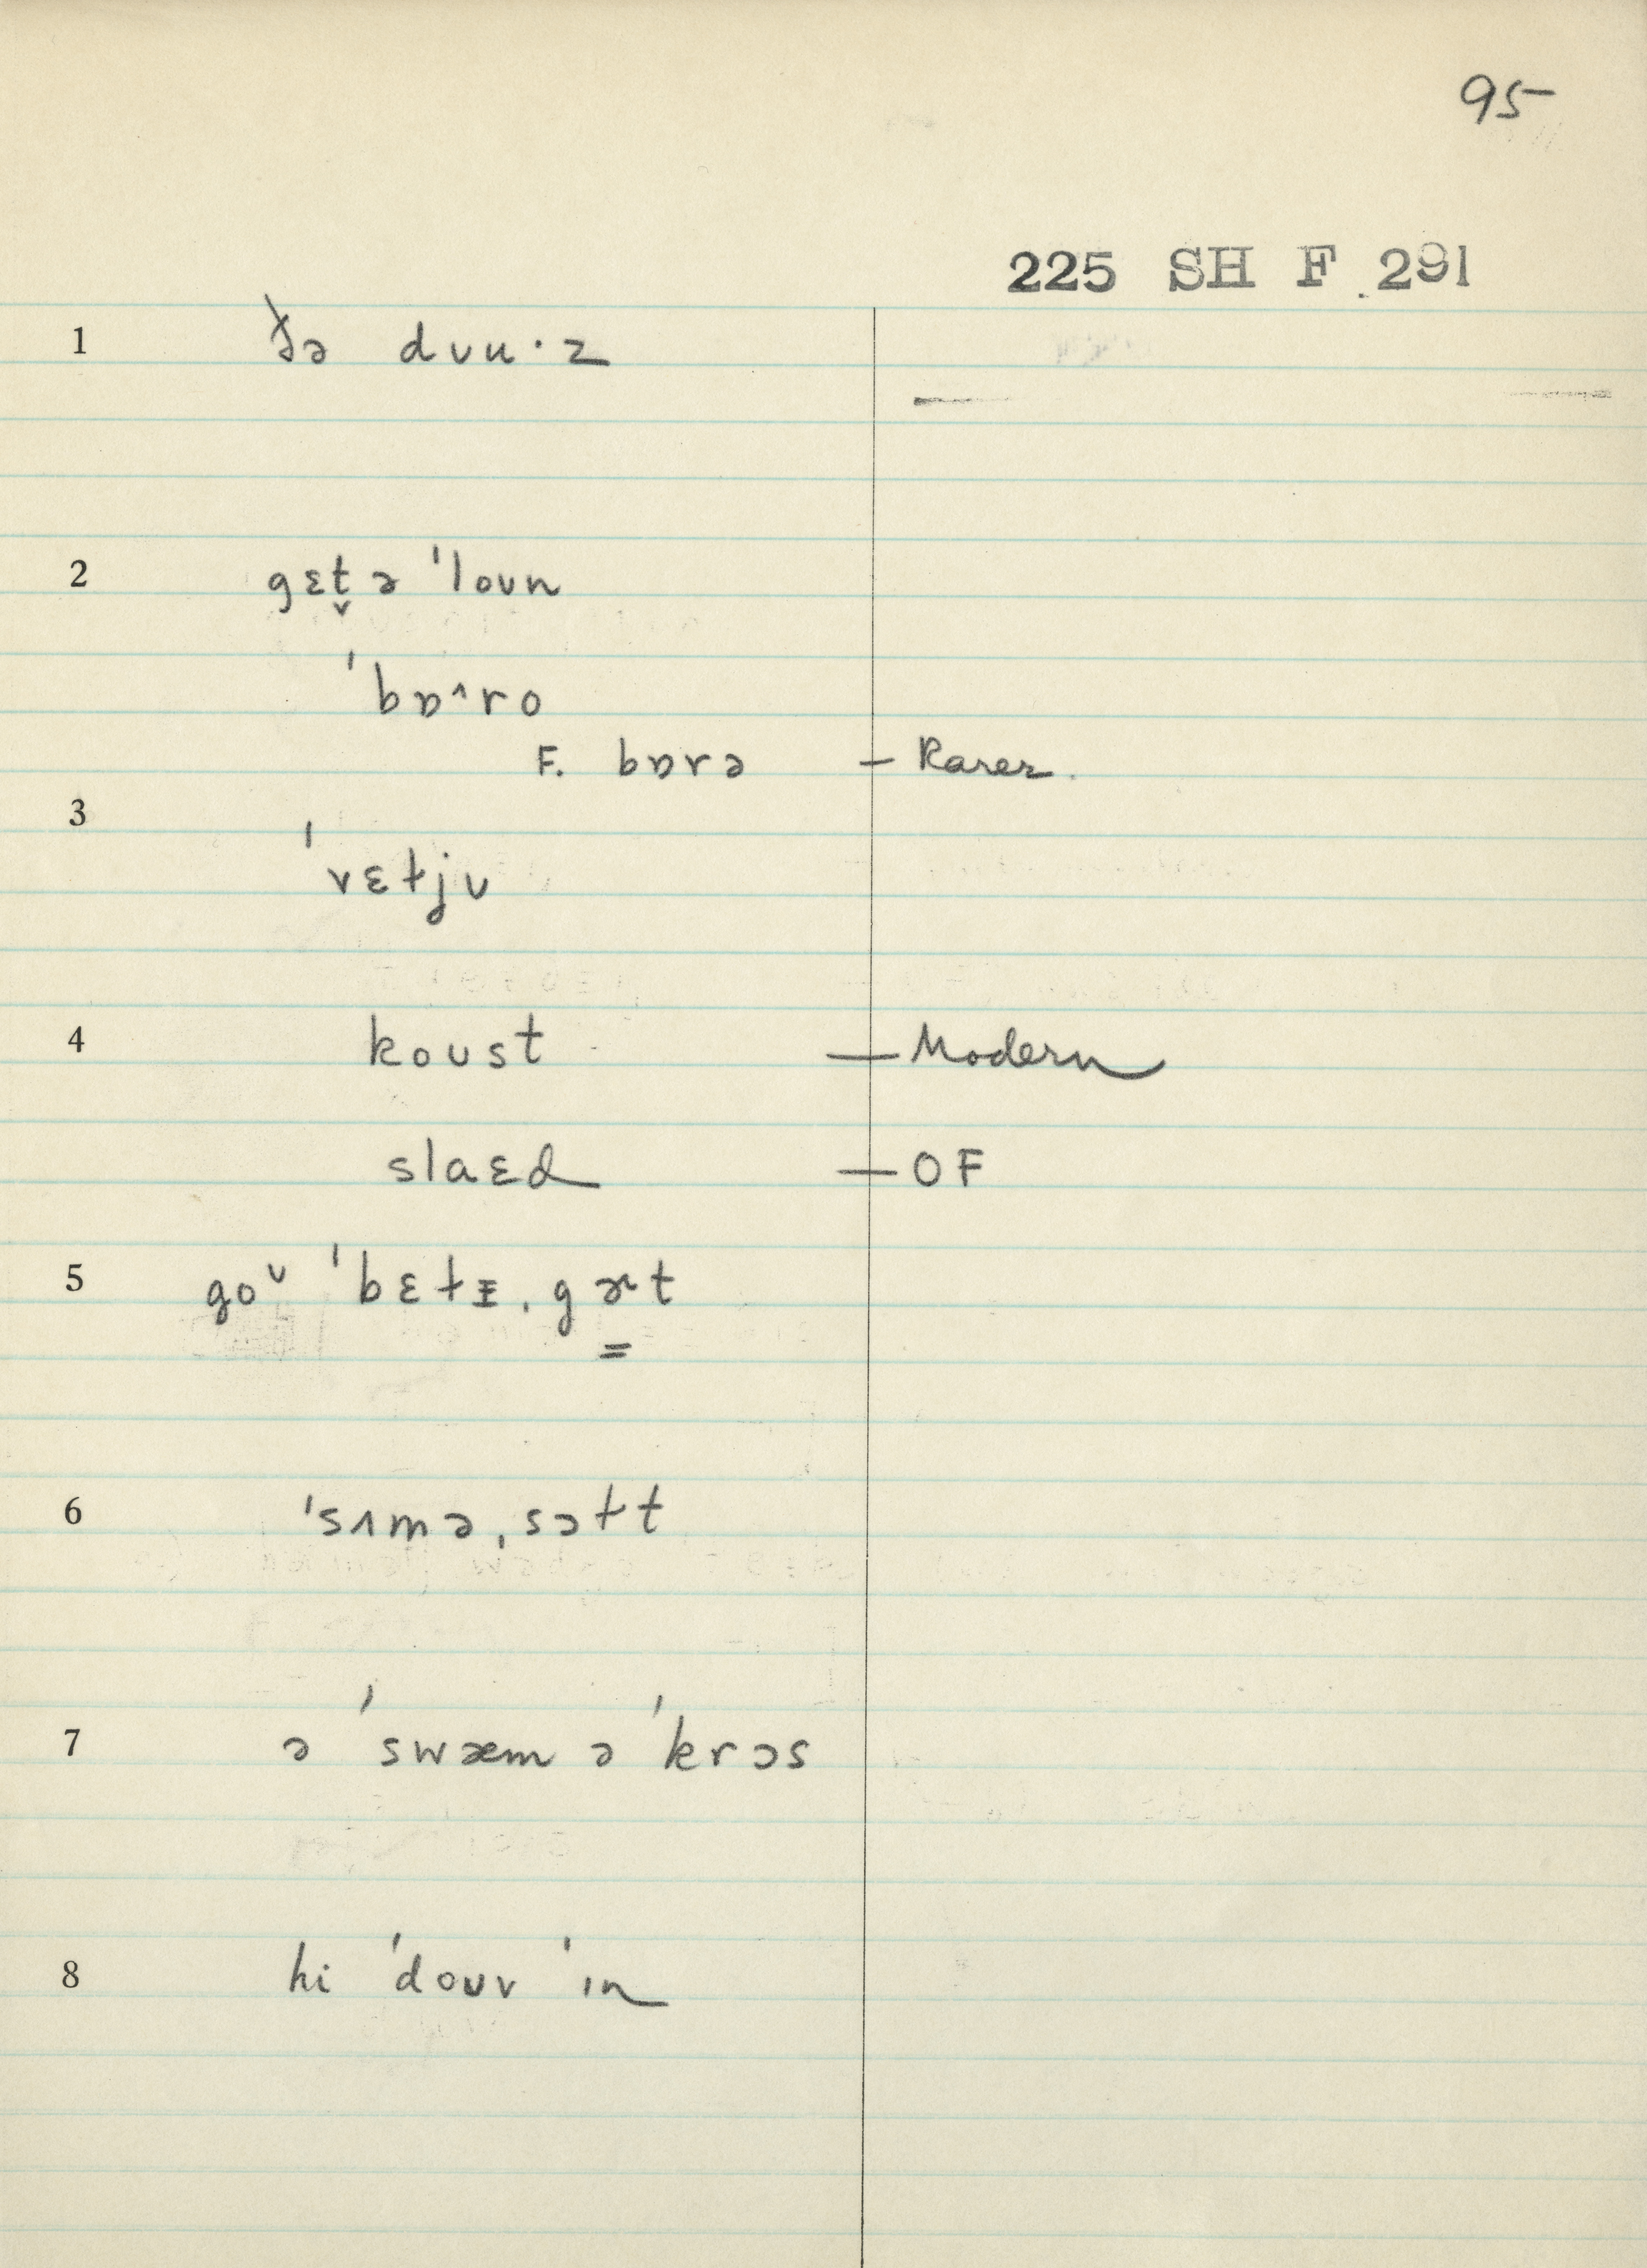 95
225 SH F 291
1 ðə dʊu·z
2 gɛt̬ ə 'loʊn
'bɒ^ro
F. bɒrə — Rarer.
3 'vɛɫjʊ
4 koʊst — Modern
slaɛd — OF
5 goᵛ 'bɛɫɪ, gɚt
6 'sʌmə, sɔɫt
7 ə 'swæm ə 'krɔs
8 hi 'doʊv 'ɪn